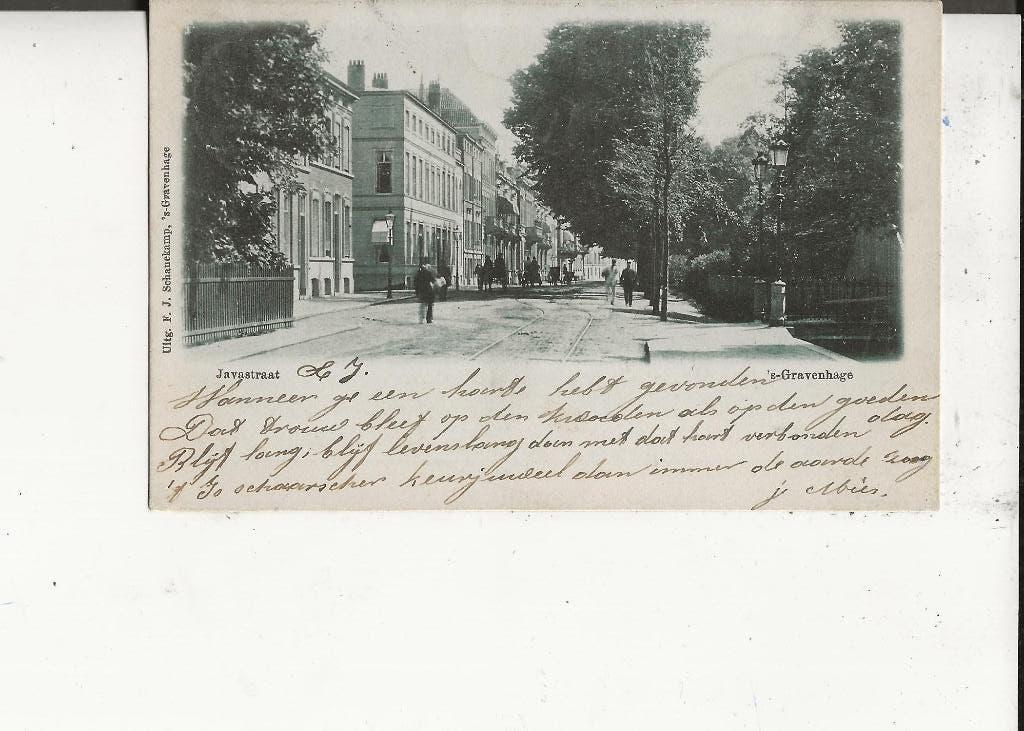 Uitg. F. J. Schanekamp, 's-Gravenhage
Javastraat
's-Gravenhage
L J.
Wanneer ge een harte hebt gevonden
Dat trouw bleef op den kwaden als op den goeden dag.
Blijf lang, blijf levenslang dan met dat hart verbonden
't Is schaarscher keurjuweel dan immer de aarde zag
je Mies.